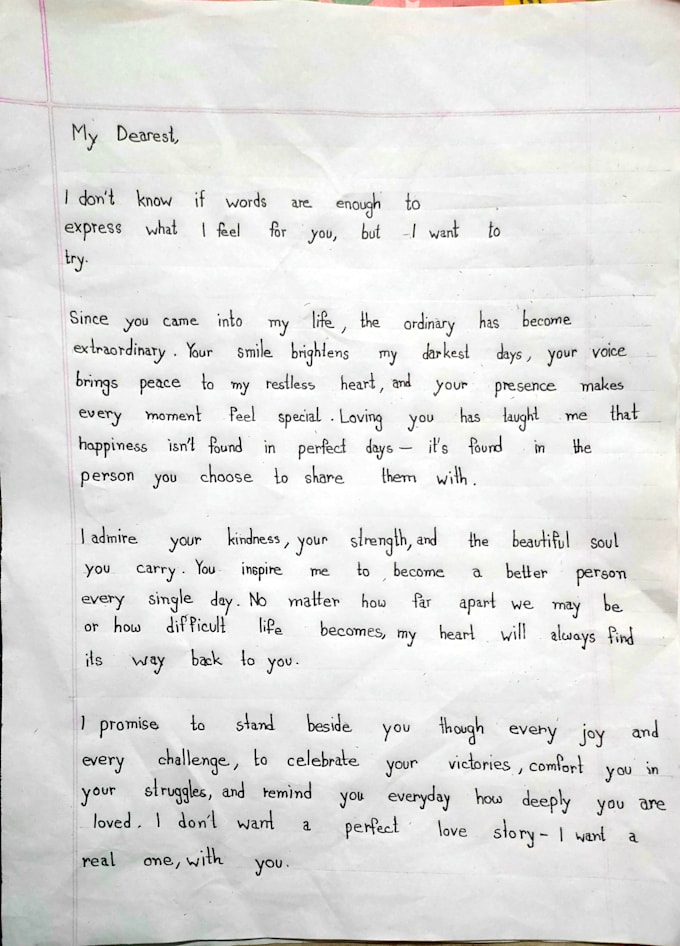 My Dearest,
I don't know if words are enough to
express what I feel for you, but I want to
try.
Since you came into my life, the ordinary has become
extraordinary. Your smile brightens my darkest days, your voice
brings peace to my restless heart, and your presence makes
every moment feel special. Loving you has taught me that
happiness isn't found in perfect days – it's found in the
person you choose to share them with.
I admire your kindness, your strength, and the beautiful soul
you carry. You inspire me to become a better person
every single day. No matter how far apart we may be
or how difficult life becomes, my heart will always find
its way back to you.
I promise to stand beside you though every joy and
every challenge, to celebrate your victories, comfort you in
your struggles, and remind you everyday how deeply you are
loved. I don't want a perfect love story – I want a
real one, with you.